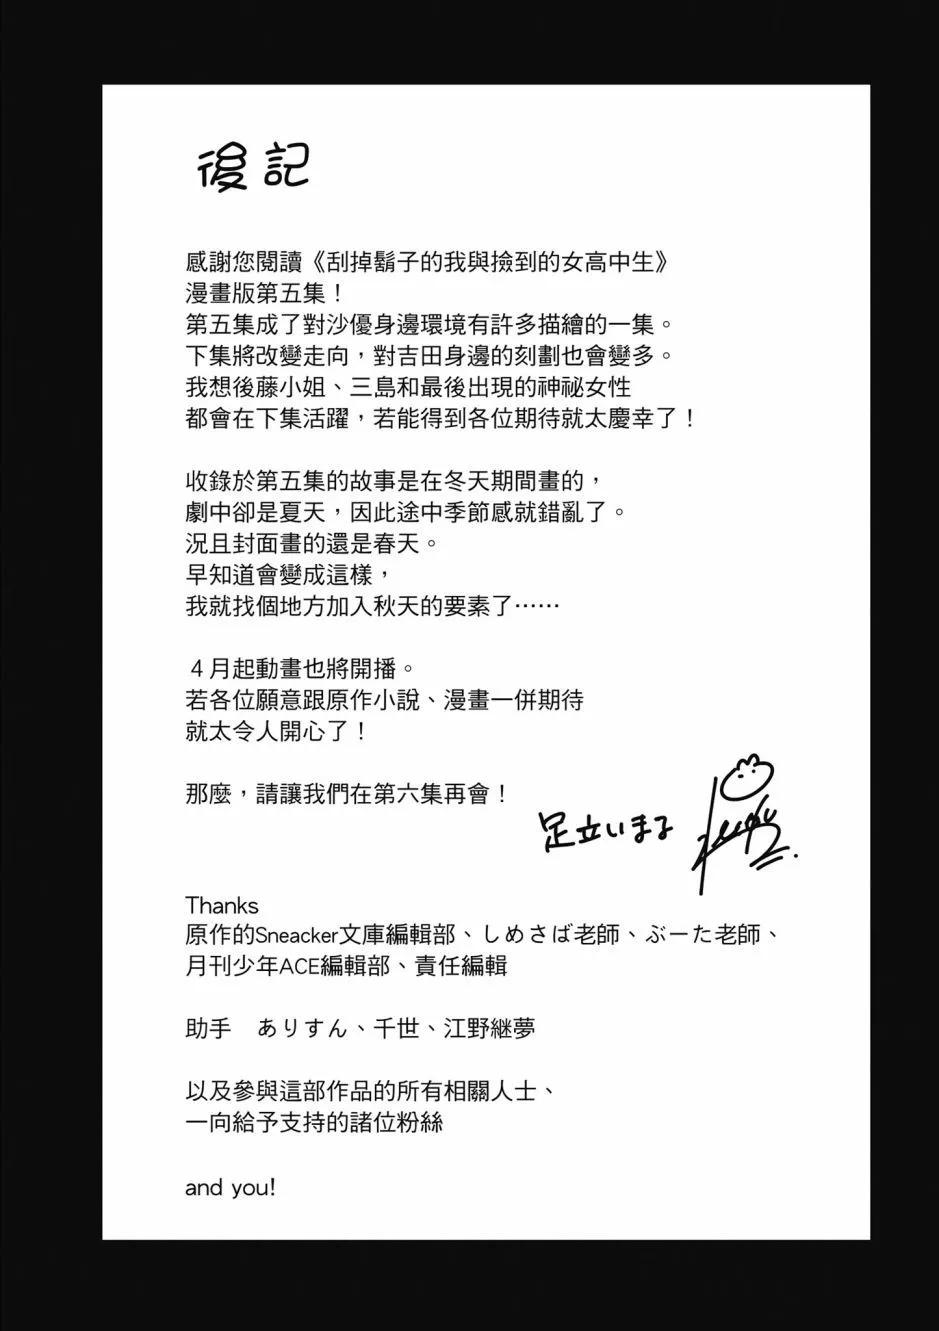 後記
感謝您閱讀《刮掉鬍子的我與撿到的女高中生》
漫畫版第五集！
第五集成了對沙優身邊環境有許多描繪的一集。
下集將改變走向，對吉田身邊的刻劃也會變多。
我想後藤小姐、三島和最後出現的神祕女性
都會在下集活躍，若能得到各位期待就太慶幸了！
收錄於第五集的故事是在冬天期間畫的，
劇中卻是夏天，因此途中季節感就錯亂了。
況且封面畫的還是春天。
早知道會變成這樣，
我就找個地方加入秋天的要素了……
４月起動畫也將開播。
若各位願意跟原作小說、漫畫一併期待
就太令人開心了！
那麼，請讓我們在第六集再會！
足立いまる
Thanks
原作的Sneacker文庫編輯部、しめさば老師、ぶーた老師、
月刊少年ACE編輯部、責任編輯
助手　ありすん、千世、江野継夢
以及參與這部作品的所有相關人士、
一向給予支持的諸位粉絲
and you!